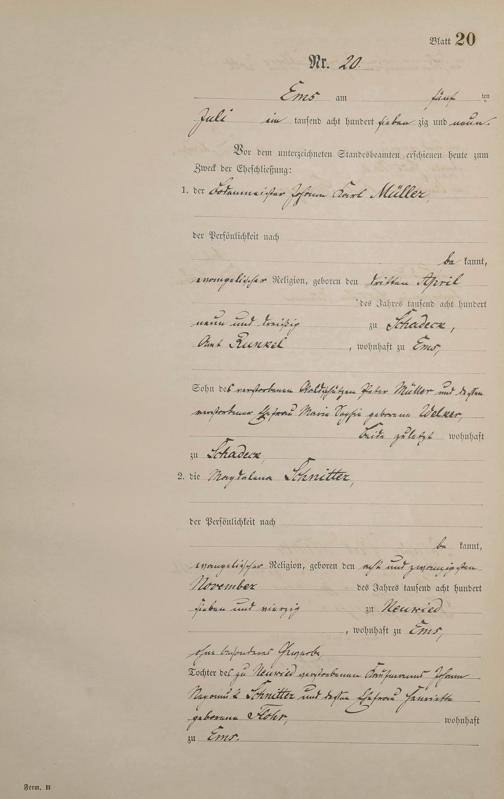 Blatt 20
Nr. 20.
Ems am fünf ten
Juli ein tausend acht hundert sieben zig und neun.
Vor dem unterzeichneten Standesbeamten erschienen heute zum
Zweck der Eheschließung:
1. der Bademeister Johann Karl Müller,
der Persönlichkeit nach
be kannt,
evangelischer Religion, geboren den dritten April
des Jahres tausend acht hundert
neun und dreißig zu Schadeck,
Amt Runkel, wohnhaft zu Ems,
Sohn des verstorbenen Peter Müller und dessen
verstorbener Ehefrau Marie Sophie geborene
beide zuletzt wohnhaft
zu Schadeck,
2. die Magdalena Schnitter,
der Persönlichkeit nach
be kannt,
evangelischer Religion, geboren den acht und zwanzigsten
November des Jahres tausend acht hundert
sieben und vierzig zu Neuwied
, wohnhaft zu Ems,
ohne besonderes Gewerbe
Tochter des zu Neuwied verstorbenen Kaufmanns Johann
Schnitter und dessen Ehefrau Henriette
geborene Flohr, wohnhaft
zu Ems.
Form. B